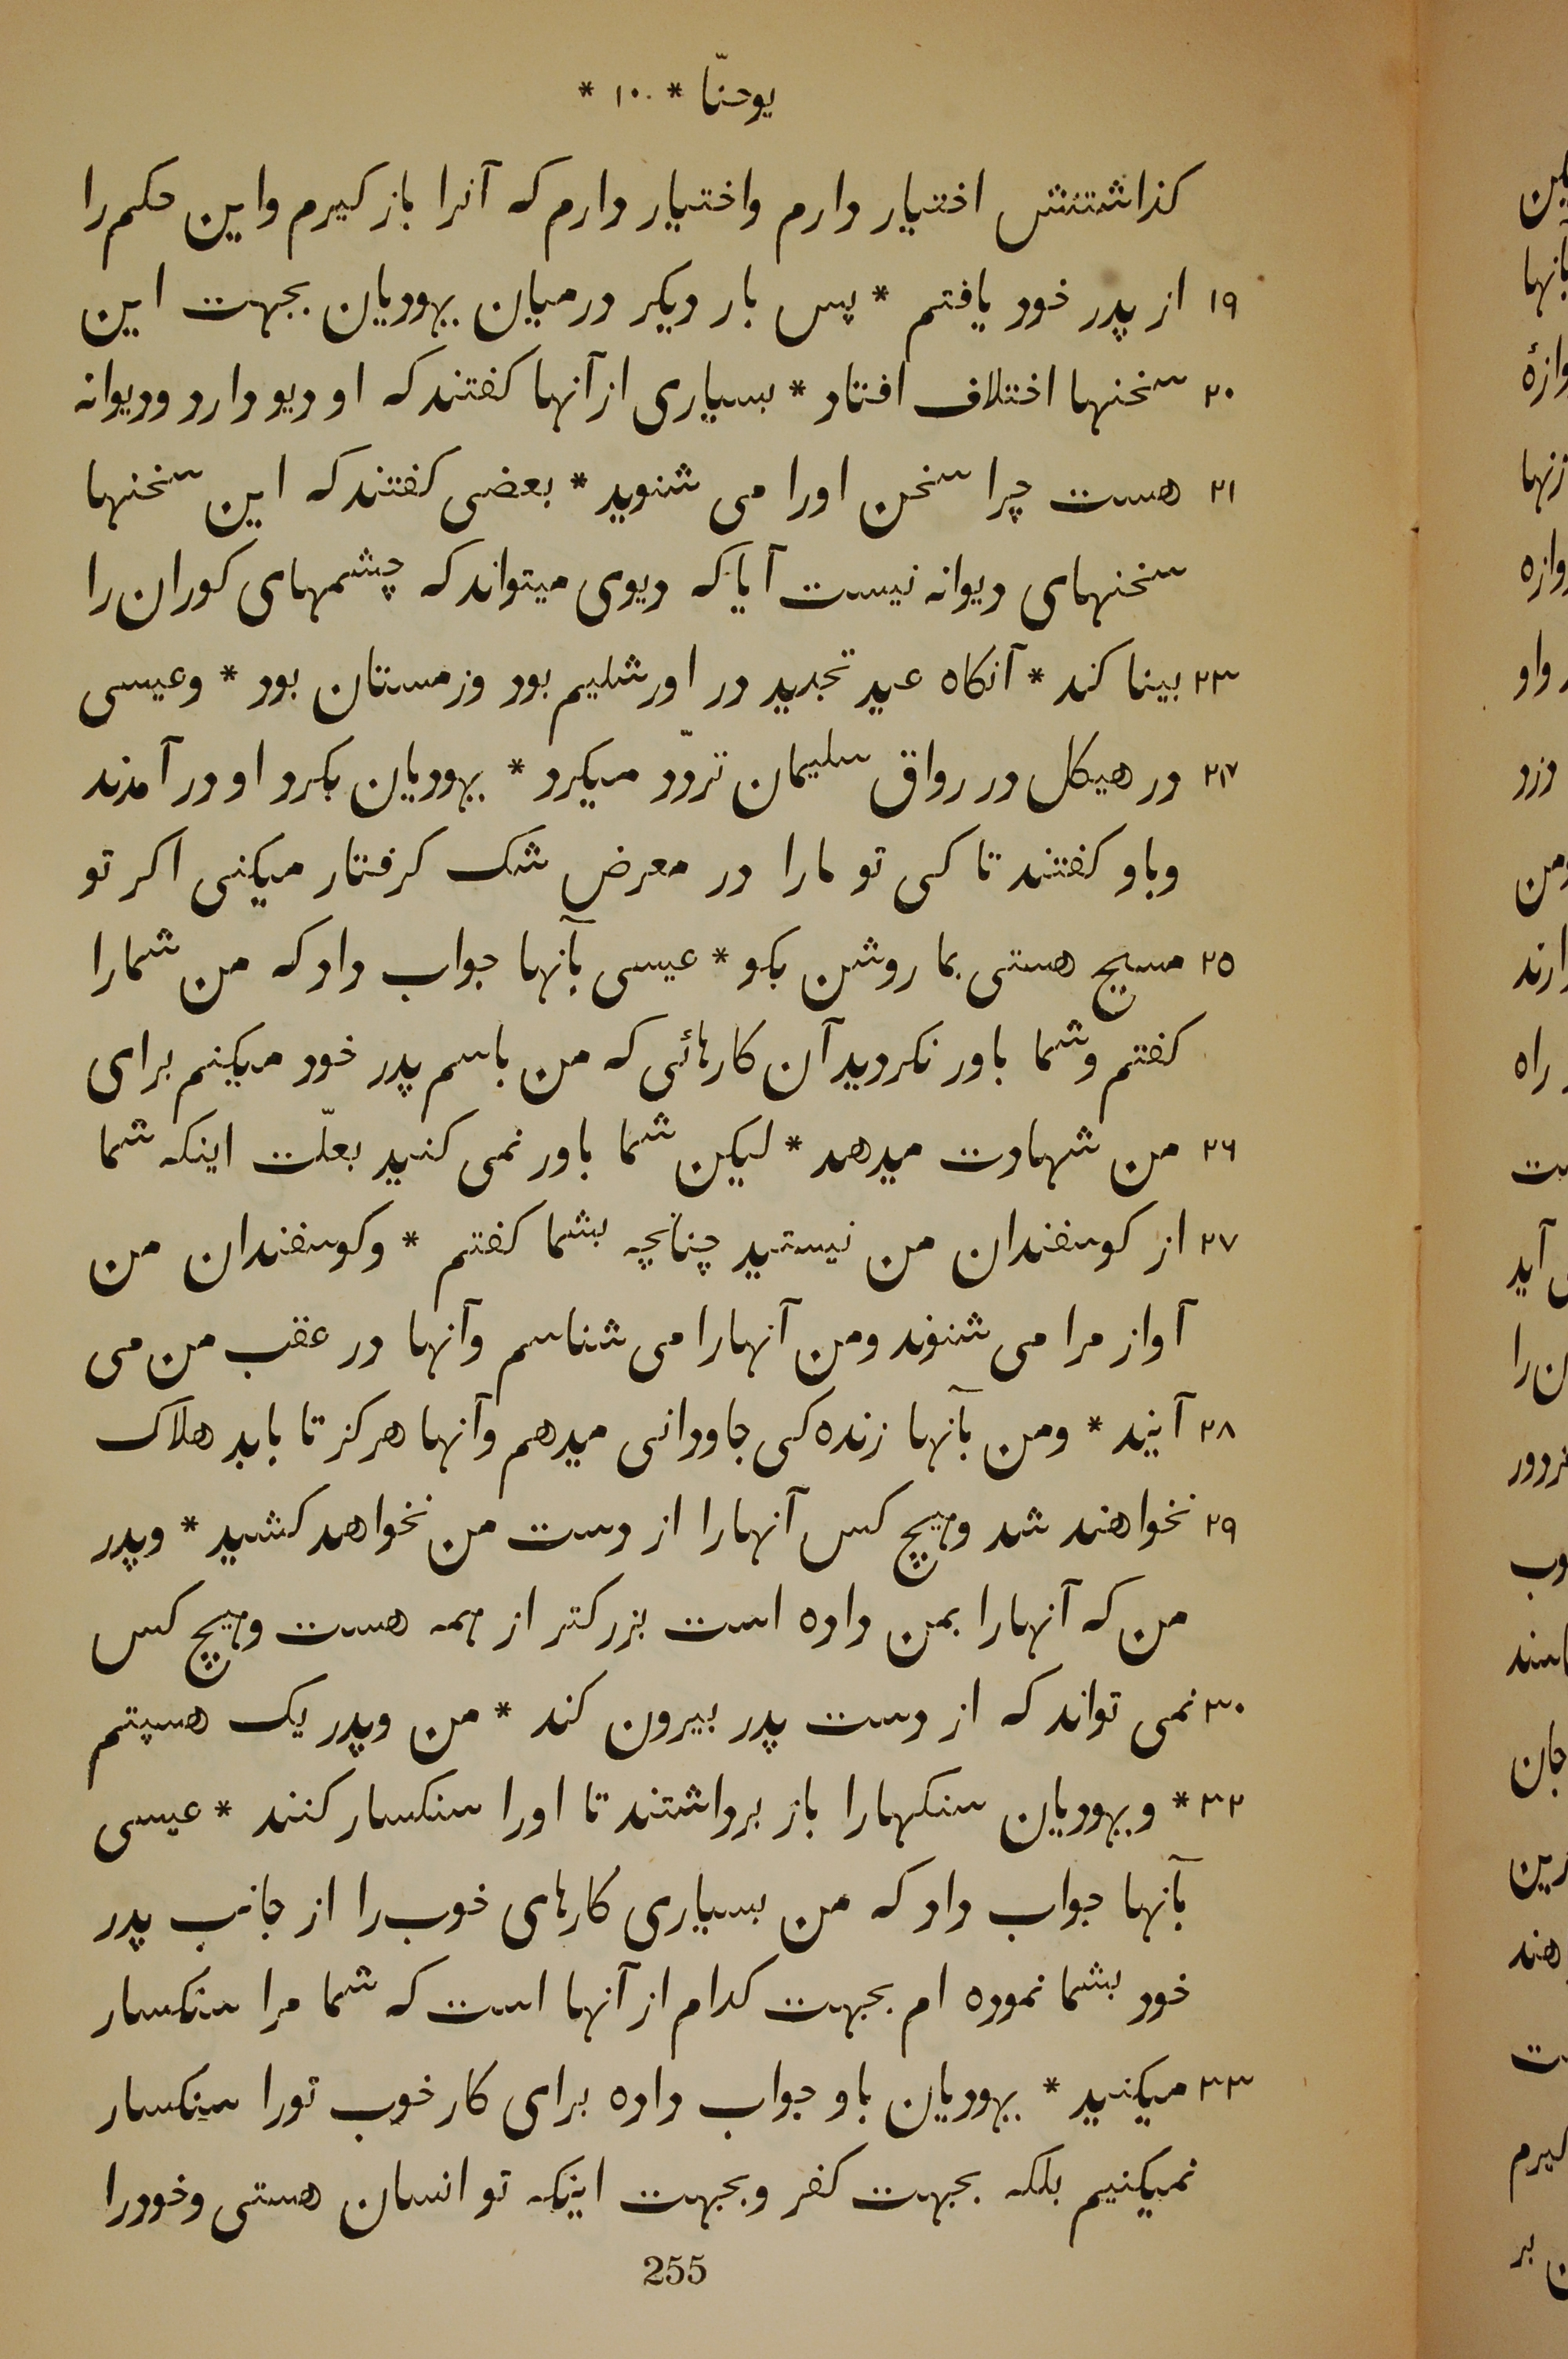 يوحنّا * ١٠ *
كذاشتنش اختيار دارم واختيار دارم كه آنرا باز كيرم واين حكم را
١٩ از پدر خود يافتم * پس بار ديكر درميان يهوديان بجهت اين
٢٠ سخنها اختلاف افتاد * بسياری از آنها كفتند كه او ديو دارد وديوانه
٢١ هست چرا سخن اورا می شنويد * بعضی كفتند كه اين سخنها
سخنهای ديوانه نيست آيا كه ديوی ميتواند كه چشمهای كوران را
٢٢٣ بينا كند * آنكاه عيد تجديد در اورشليم بود وزمستان بود * وعيسی
٢٤ در هيكل در رواق سليمان تردّد ميكرد * يهوديان بكرد او در آمدند
وباو كفتند تا كی تو مارا در معرض شك كرفتار ميكنی اكر تو
٢٥ مسيح هستی بما روشن بكو * عيسی بآنها جواب داد كه من شمارا
كفتم وشما باور نكرديد آن كارهائی كه من باسم پدر خود ميكنم برای
٢٦ من شهادت ميدهد * ليكن شما باور نمی كنيد بعلّت اينكه شما
٢٧ از كوسفندان من نيستيد چنانچه بشما كفتم * وكوسفندان من
آواز مرا می شنوند ومن آنهارا می شناسم وآنها در عقب من می
٢٨ آيند * ومن بآنها زنده كی جاودانی ميدهم وآنها هركز تا بابد هلاك
٢٩ نخواهند شد وهيچ كس آنهارا از دست من نخواهد كشيد * وپدر
من كه آنهارا بمن داده است بزركتر از همه هست وهيچ كس
٣٠ نمی تواند كه از دست پدر بيرون كند * من وپدر يك هسيتم
٣٢ * ويهوديان سنكهارا باز برداشتند تا اورا سنكسار كنند * عيسی
بآنها جواب داد كه من بسياری كارهای خوب را از جانب پدر
خود بشما نموده ام بجهت كدام از آنها است كه شما مرا سنكسار
٣٣ ميكنيد * يهوديان باو جواب داده برای كار خوب تورا سنكسار
نميكنيم بلكه بجهت كفر وبجهت اينكه تو انسان هستی وخودرا
255